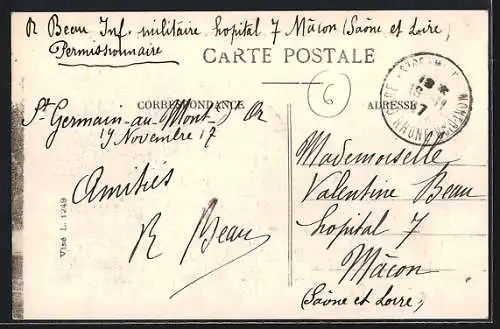 R Beau Inf. militaire hopital 7 Mâcon (Saône et Loire)
Permissionnaire
CARTE POSTALE
6
CORRESPONDANCE
ADRESSE
St Germain-au-Mont-d'Or
19 Novembre 17
Amitiés
R Beau
Mademoiselle
Valentine Beau
hopital 7
Mâcon
(Saône et Loire)
Visé L. 1249